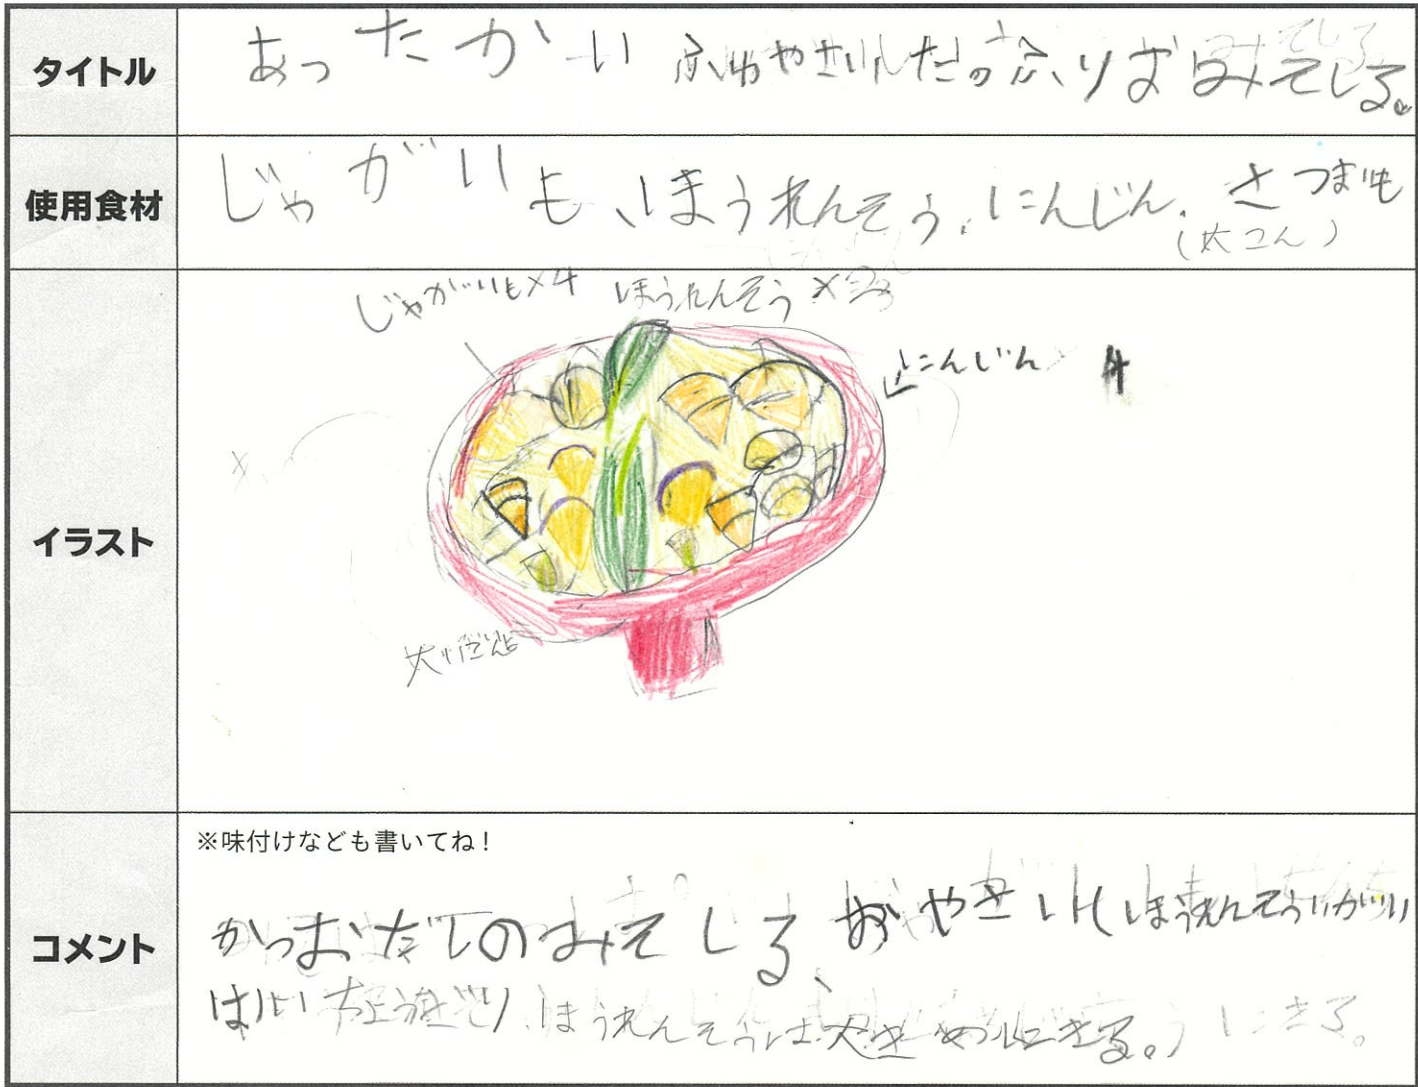 タイトル
あったかい ふゆやさいんだの ふりお みそしる。
使用食材
じゃがいも、ほうれんそう、にんじん、さつまいも
(大こん)
イラスト
じゃがいも×4 ほうれんそう×
にんじん 4
コメント
※味付けなども書いてね!
かつおだしのみそしる、おやさい ほうれんそういがい
は いちょうぎり ほうれんそうは大きめにきる。